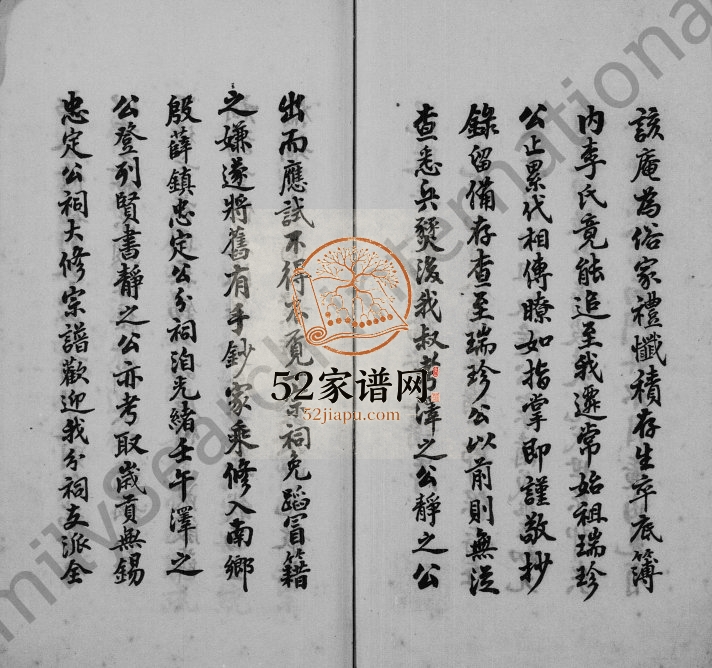 該庵為俗家禮懺積存生卒底簿
內李氏竟能追至我遷常始祖瑞珍
公止累代相傳瞭如指掌即謹敬抄
錄留備存查至瑞珍公以前則無從
查悉兵燹後我叔考澤之公靜之公
出而應試不得不覓宗祠免蹈冒籍
之嫌遂將舊有手鈔家乘修入南鄉
殷薛鎮忠定公分祠洎光緒壬午澤之
公登列賢書靜之公亦考取歲貢無錫
忠定公祠大修宗譜歡迎我分祠支派全
52家谱网
52jiapu.com
FamilySearch International